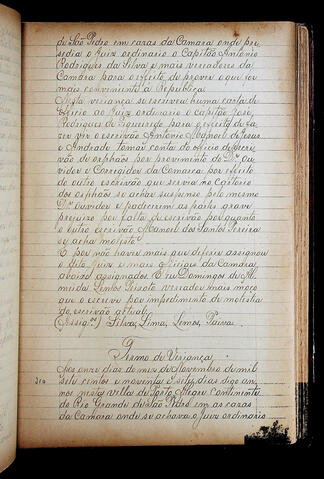 de São Pedro em cazas da Camara onde pre-
sedia o Juiz ordinario o Capitão Antonio
Rodrigues da Silva e mais vereadores da
Camara para o efeito de prover o que for
mais conviniente á Republica.
Nesta veriança se escreveu huma carta de
officio ao Juiz ordinario o Capitão José
Rodrigues de Figueiredo para o efeito de fa-
zer vir o escrivão Antonio Manoel de Jesus
e Andrade tomar conta do officio de escri-
vão de orphãos por provimento do Dr. Ou-
vidor e Corregedor da Comarca por efeito
do outro escrivão que servia no Cartorio
dos orphãos se achar suspenso pelo mesmo
Dr. Ouvidor e padecerem as partes grave
prejuizo por falta de escrivão por quanto
o outro escrivão Manoel dos Santos Pereira
se acha molesto.
E por não haver mais que diferir assignou
o dito Juiz e mais officiaes da Camara,
abaixo assignados. E eu Domingos de Al-
meida Lemos Peixoto vereador mais moço
que o escrevo por impedimento de molestia
do escrivão actual.
(Assigos.) Silva, Lima, Lemos, Paiva.
Termo de Veriança
Aos onze dias do mez de Novembro de mil
sete centos e noventa e sete, dias digo an-
nos nesta villa de Porto Alegre Continente
do Rio Grande de São Pedro em as cazas
da Camara onde se achava o Juiz ordinario